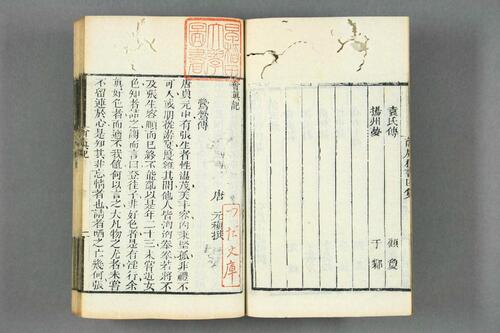 袁氏傳 顧夐
揚州夢 于鄴
會真記
鶯鶯傳
唐 元稹撰
唐貞元中有張生者性溫茂美丰容內秉堅孤非禮不
可入或朋從遊宴擾雜其間他人皆洶洶拳拳若將不
及張生容順而已終不能亂以是年二十三未嘗近女
色知者詰之謝而言曰登徒子非好色者是有淫行余
真好色者而適不我值何以言之大凡物之尤者未嘗
不留連於心是知其非忘情者也詰者哂之亡幾何張
會真記
文庫